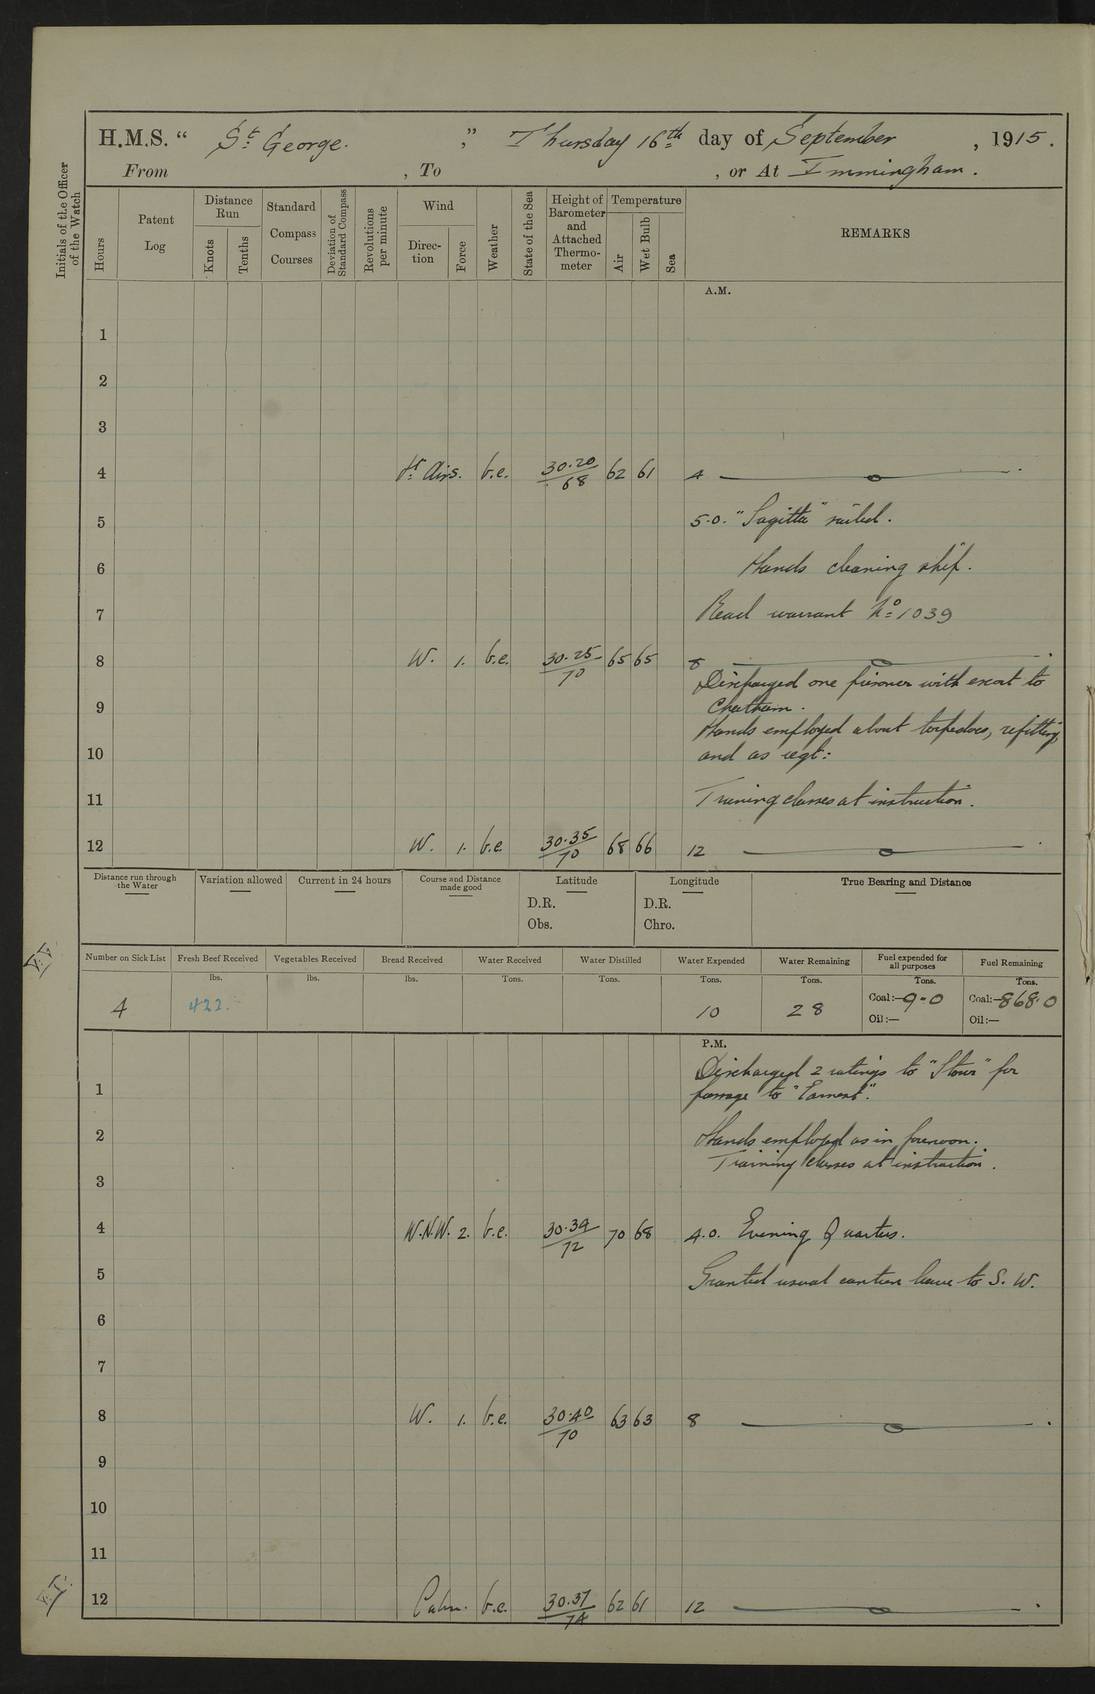 H.M.S. “ St. George. ” Thursday 16th day of September, 1915.
From , To , or At Immingham.
Initials of the Officer of the Watch
Hours
Patent Log
Distance Run
Knots
Tenths
Standard Compass Courses
Deviation of Standard Compass
Revolutions per minute
Wind
Direc-tion
Force
Weather
State of the Sea
Height of Barometer and Attached Thermo-meter
Temperature
Air
Wet Bulb
Sea
REMARKS
A.M.
1
2
3
4 Lt. Airs. b.c. 30.20/68 62 61 4
5 5.0. "Sagitta" sailed.
6 Hands cleaning ship.
7 Read warrant No. 1039
8 W. 1. b.c. 30.25/70 65 65 8
Discharged one prisoner with escort to
9 Chatham.
Hands employed about torpedoes, refitting
10 and as reqt:
11 Training classes at instruction.
12 W. 1. b.c 30.35/70 68 66 12
Distance run through the Water
Variation allowed
Current in 24 hours
Course and Distance made good
Latitude
D.R.
Obs.
Longitude
D.R.
Chro.
True Bearing and Distance
Number on Sick List
4
Fresh Beef Received
lbs.
422.
Vegetables Received
lbs.
Bread Received
lbs.
Water Received
Tons.
Water Distilled
Tons.
Water Expended
Tons.
10
Water Remaining
Tons.
28
Fuel expended for all purposes
Tons.
Coal:— 9.0
Oil:—
Fuel Remaining
Tons.
Coal:— 868.0
Oil:—
P.M.
Discharged 2 ratings to "Stour" for
1 passage to "Earnest".
2 Hands employed as in forenoon.
Training classes at instruction.
3
4 W.N.W. 2. b.c. 30.39/72 70 68 4.0. Evening Quarters.
5 Granted usual canteen leave to S. W.
6
7
8 W. 1. b.c. 30.40/70 63 63 8
9
10
11
12 Calm. b.c. 30.37/74 62 61 12